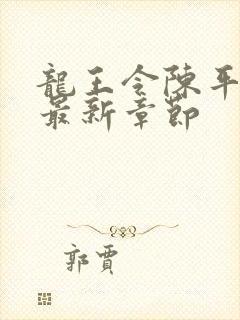 龍王令陳平
最新章節
郭賈